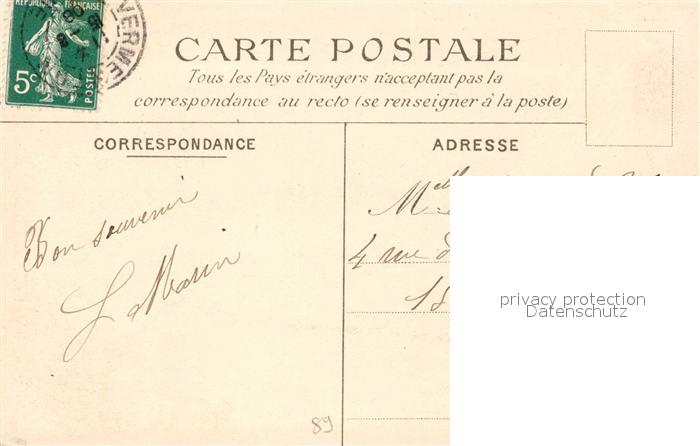 RÉPUBLIQUE FRANÇAISE
5c POSTES
VERME
CARTE POSTALE
Tous les Pays étrangers n'acceptent pas la
correspondance au recto (se renseigner à la poste)
CORRESPONDANCE
Bon souvenir
L Marin
89
ADRESSE
Melle
4 rue d
18
privacy protection
Datenschutz